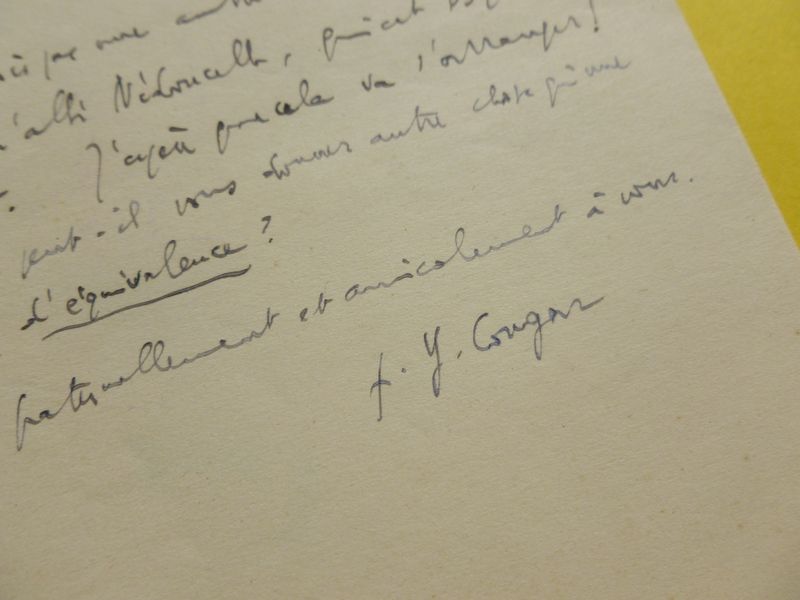 pas une autre
l'abbé Nédoncelle, qui est
J'espère que cela va s'arranger!
peut-il vous donner autre chose qu'une
d'équivalence?
fraternellement et amicalement à vous.
f. Y. Congar